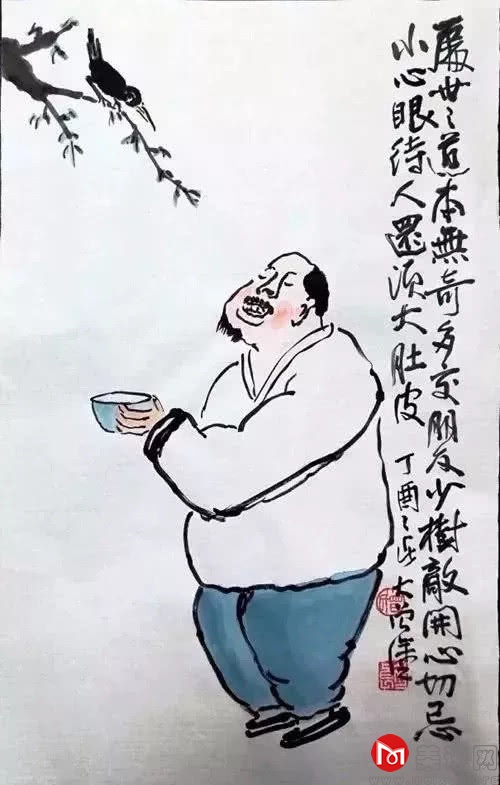 處世之道本無奇多交朋友少樹敵開心切忌
小心眼待人還須大肚皮
丁酉之